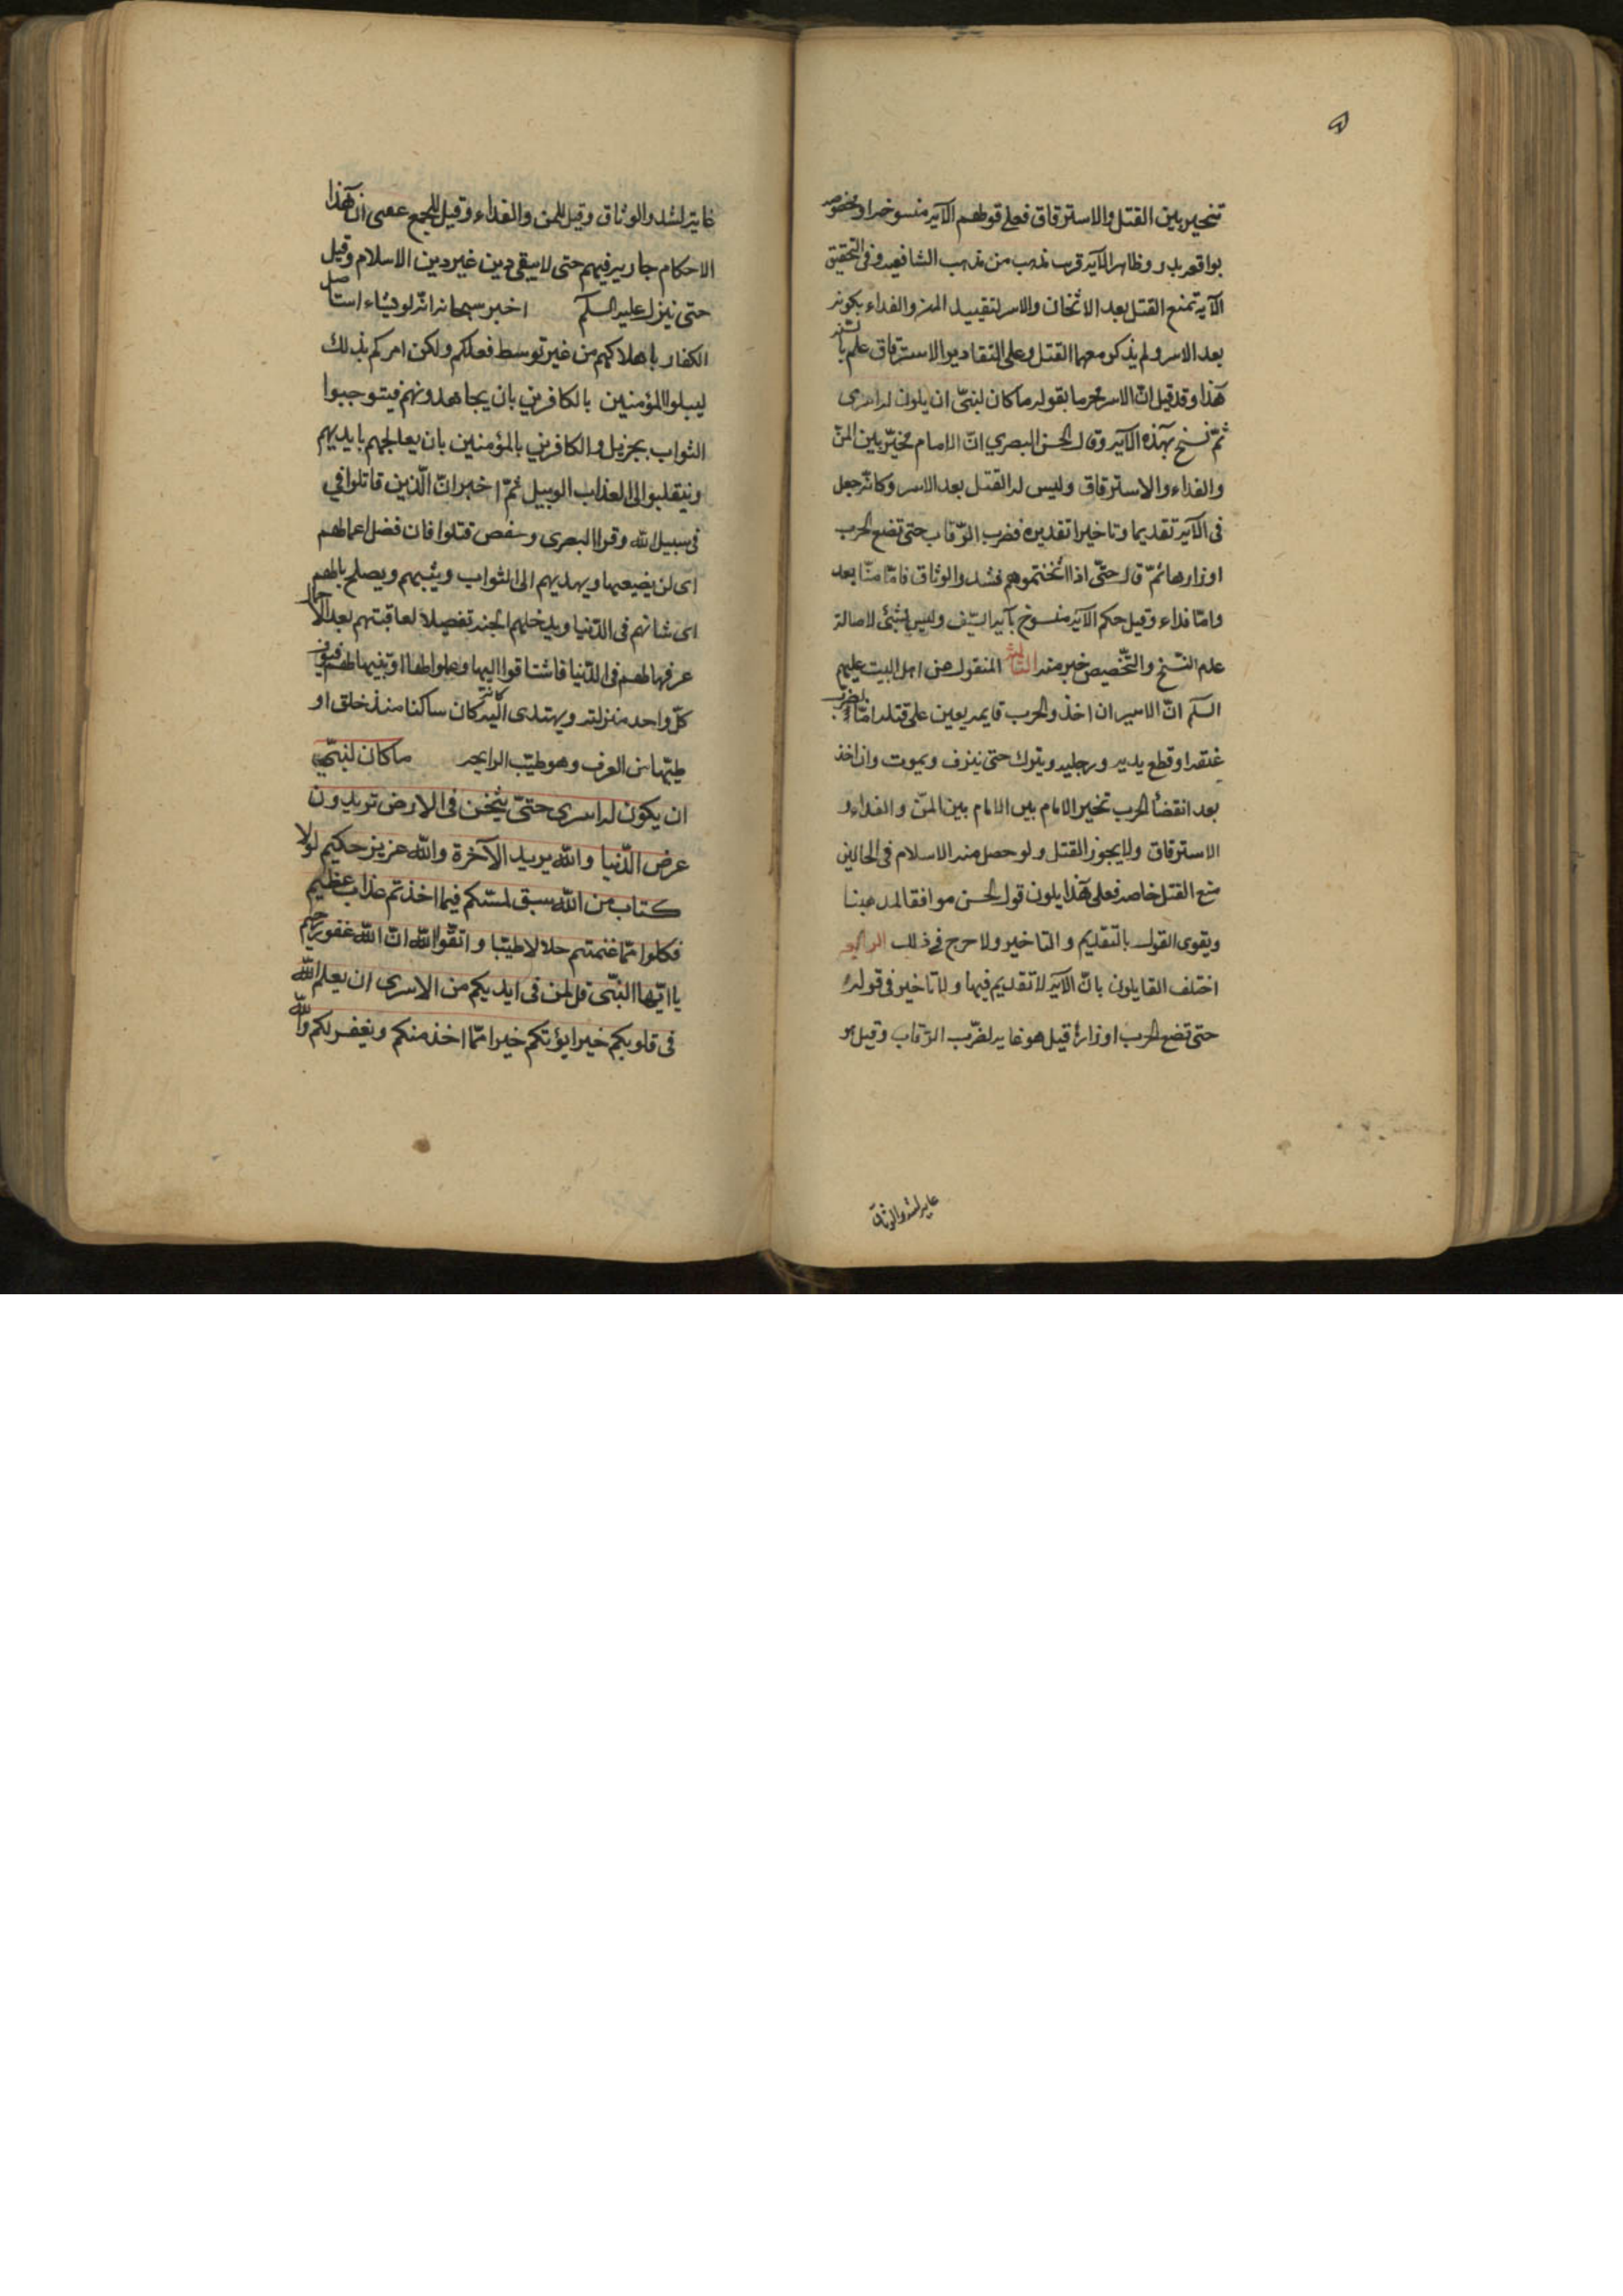 تتخير بين القتل والاسترقاق فعلى قولهم الآية منسوخة او مخصوصة
بواقعة بدر وظاهر الآية قرب مذهب من مذهب الشافعية وفي التحقيق
الآية تمنع القتل بعد الاثخان والاسر لتقييد المن والفداء بكونه
بعد الاسر ولم يذكر معهما القتل وعلى التقادير الاسترقاق علم بالسنة
هذا وقد قيل ان الاسر محرما بقوله ما كان لنبي ان يكون له اسرى
ثم نسخ بهذه الآية وقال الحسن البصري ان الامام مخير بين المن
والفداء والاسترقاق وليس له القتل بعد الاسر وكانه جعل
في الآية تقديما وتاخيرا تقديره فضرب الرقاب حتى تضع الحرب
اوزارها ثم قال حتى اذا اثخنتموهم فشدوا الوثاق فاما منا بعد
واما فداء وقيل حكم الآية منسوخ بآية السيف وليس بشئ لاصالة
عدم النسخ والتخصيص خير منه الثالث المنقول عن اهل البيت عليهم
السلم ان الاسير ان اخذ والحرب قايمة يعين على قتله اما بضرب
عنقه او قطع يديه ورجليه ويترك حتى ينزف ويموت وان اخذ
بعد انقضأ الحرب تخير الامام بين الامام بين المن والفداء و
الاسترقاق ولا يجوز القتل ولو حصل منه الاسلام في الحالين
منع القتل خاصة فعلى هذا يكون قول الحسن موافقا لمذهبنا
ويقوى القول بالتقديم والتاخير ولا حرج في ذلك الرابع
اختلف القايلون بان الآية لا تقديم فيها ولا تاخير في قوله
حتى تضع الحرب اوزارها قيل هو غاية لضرب الرقاب وقيل هو
غاية لشد والوثاق
غاية لشد والوثاق وقيل للمن والفداء وقيل للجمع عمعنى ان هذا
الاحكام جارية فيهم حتى لا يبقى دين غير دين الاسلام وقيل
حتى ينزل عليه السلم اخبر سبحانه انه لو يشاء استاصل
الكفار باهلاكهم من غير توسط فعلكم ولكن امركم بذلك
ليبلو المؤمنين بالكافرين بان يجاهدونهم فيتوجبوا
الثواب بجزيل والكافرين بالمؤمنين بان يعالجهم بايديهم
وينقلبوا الى العذاب الوبيل ثم اخبر ان الذين قاتلوا في
في سبيل الله وقرا البصرى وحفص قتلوا فان فضل اعمالهم
اى لن يضيعها ويهديهم الى الثواب ويثيبهم ويصلح بالهم
اى شانهم في الدنيا ويدخلهم الجنة تفصيلا لعاقبتهم بعد الاجمال
عرفها لهم في الدنيا فاشتاقوا اليها وعملوا لها او بينها لهم فيعرف
كل واحد منزلته ويهتدى اليه كانه كان ساكنا منذ خلق او
طيبها من العرف وهو طيب الرايحة ما كان لنبي
ان يكون له اسرى حتى يثخن في الارض تريدون
عرض الدنيا والله يريد الآخرة والله عزيز حكيم لولا
كتاب من الله سبق لمسكم فيما اخذتم عذاب عظيم
فكلوا مما غنمتم حلالا طيبا واتقوا الله ان الله غفور رحيم
يا ايها النبى قل لمن في ايديكم من الاسرى ان يعلم الله
في قلوبكم خيرا يؤتكم خيرا مما اخذ منكم ويغفر لكم والله